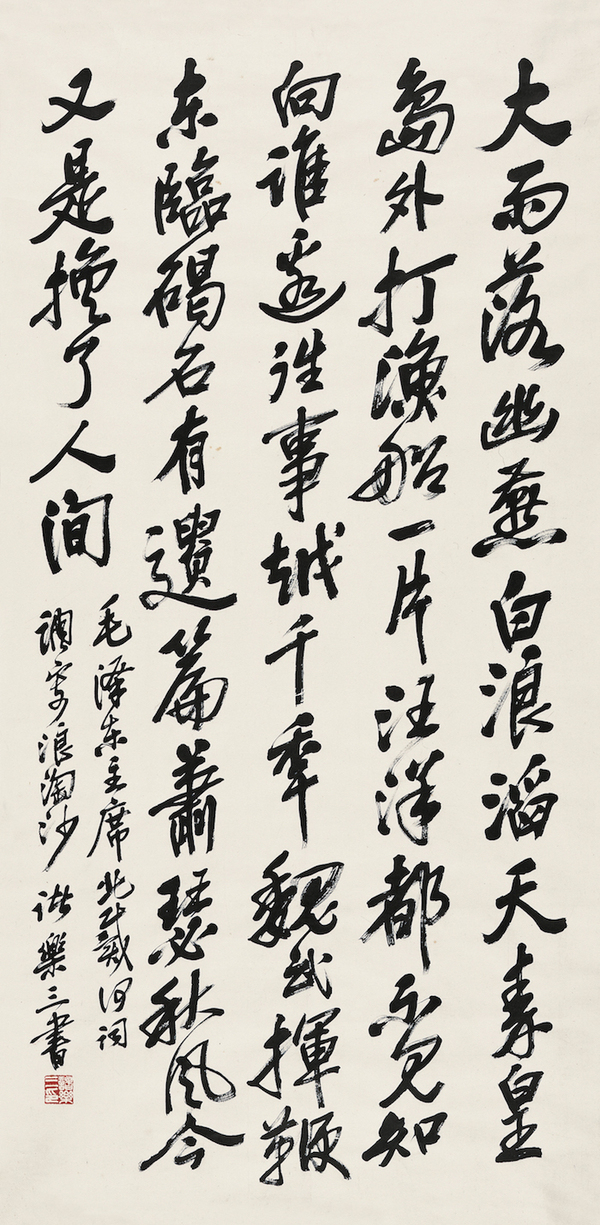 大雨落幽燕白浪滔天秦皇
島外打漁船一片汪洋都不見知
向誰邊往事越千秊魏武揮鞭
东臨碣石有遺篇蕭瑟秋風今
又是換了人間
毛澤东主席北戴河詞
調寄浪淘沙 諸樂三書